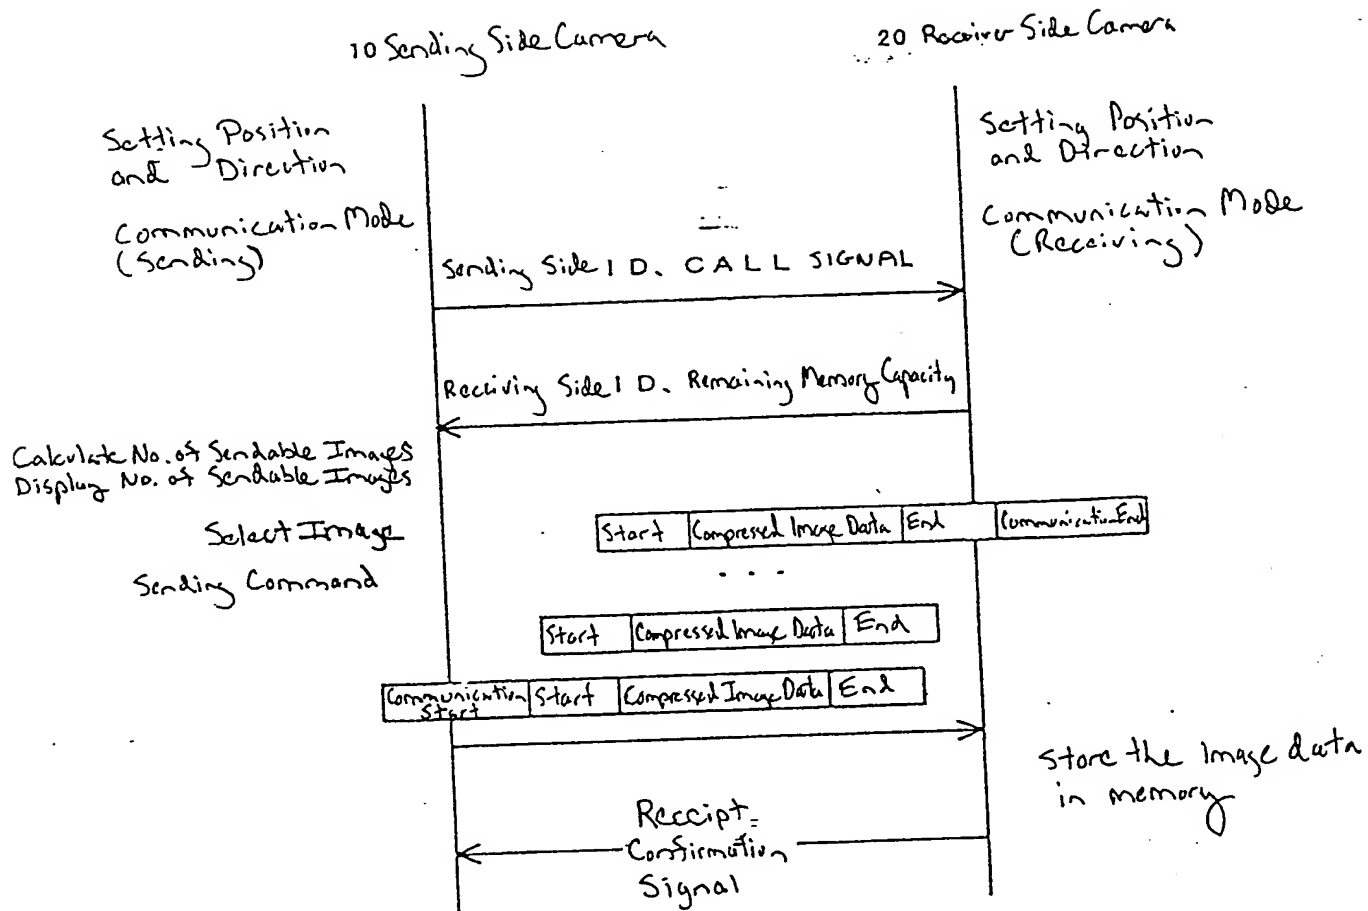 10 Sending Side Camera
20 Receiver Side Camera
Setting Position
and Direction
Setting Position
and Direction
Communication Mode
(Sending)
Communication Mode
(Receiving)
Sending Side ID. CALL SIGNAL
Receiving Side ID. Remaining Memory Capacity
Calculate No. of Sendable Images
Display No. of Sendable Images
Select Image
Start Compressed Image Data End Communication End
Sending Command
. . .
Start Compressed Image Data End
Communication
Start
Start Compressed Image Data End
Store the Image data
in memory
Receipt-
Confirmation
Signal